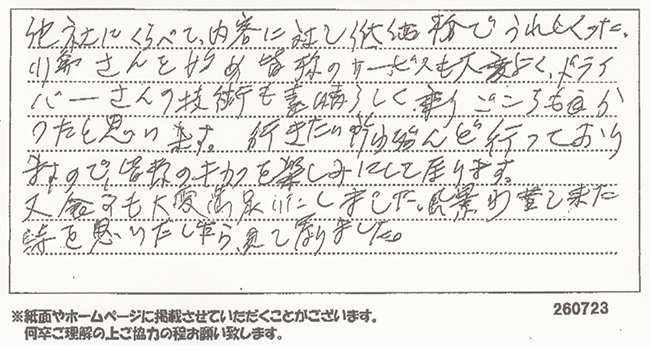 他社にくらべて、内容に対し低価格でうれしくなった。
さんを始め皆様のサービスも大変よく、ドライ
バーさんの技術も素晴らしく乗りごこちも良か
ったと思います。行きたい所は殆んど行っており
ますので、皆様のキカクを楽しみにして居ります。
又食事も大変満足いたしました。風景の
を思いだし乍ら、見て居りました。
※紙面やホームページに掲載させていただくことがございます。
何卒ご理解の上ご協力の程お願い致します。
260723